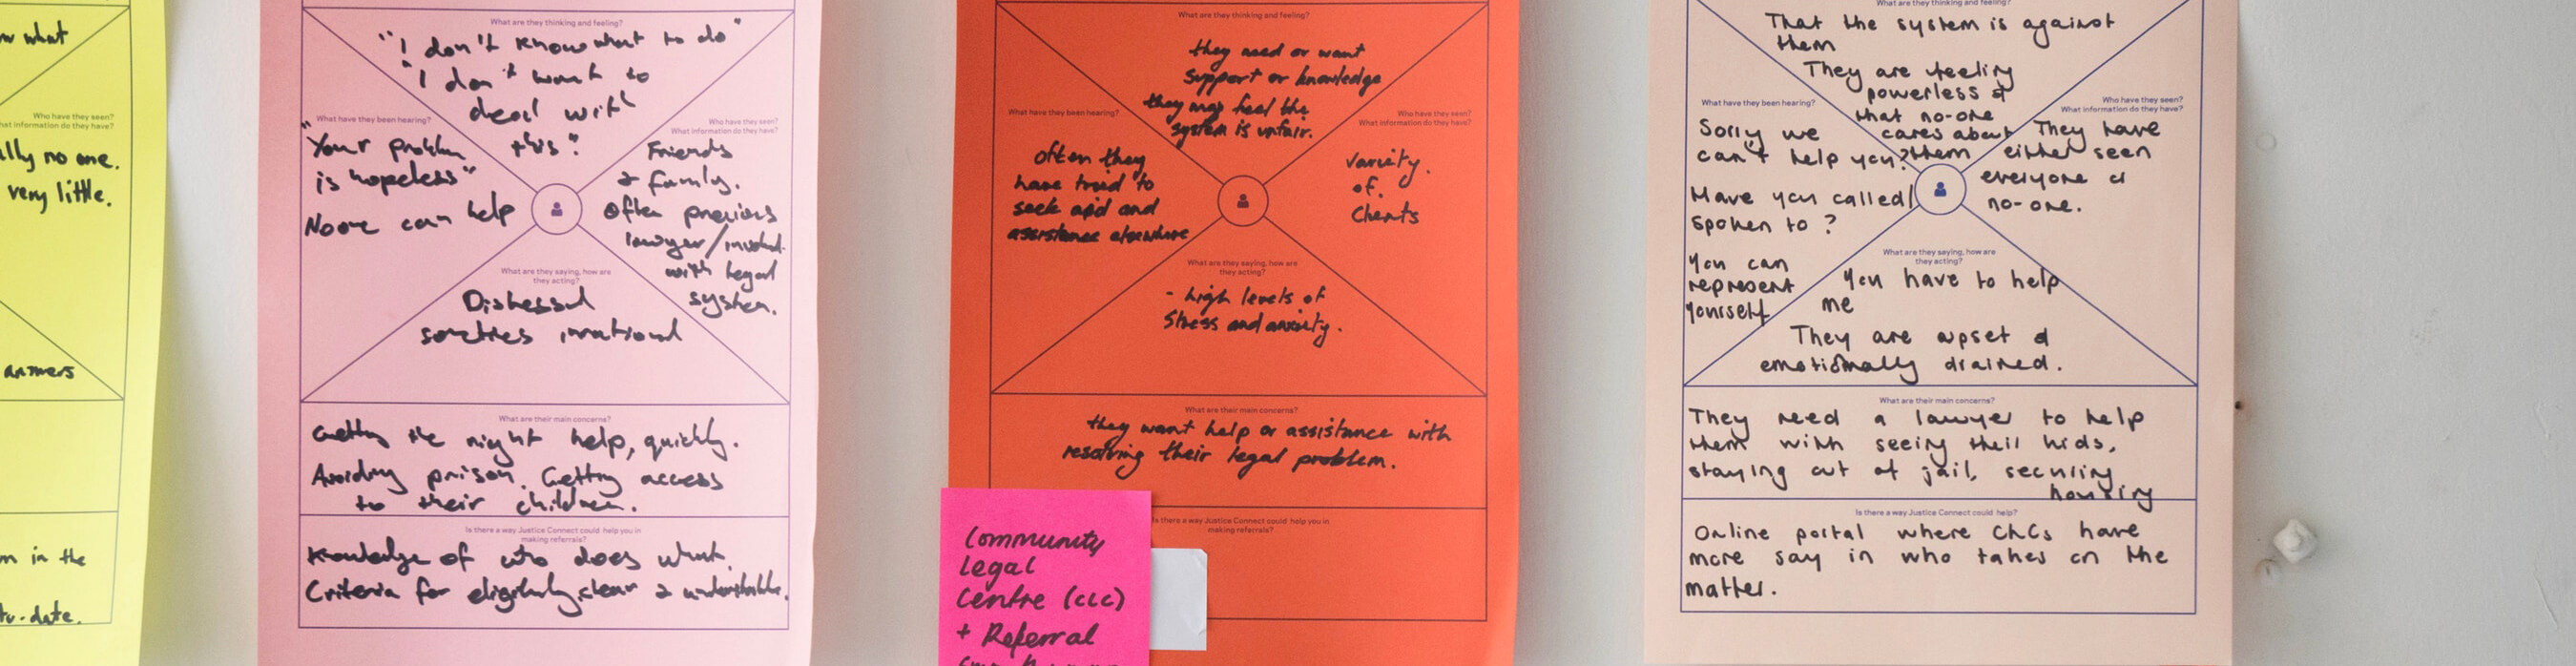 w what
Who have they seen?
What information do they have?
lly no one.
very little.
answers
m in the
to-date.
What are they thinking and feeling?
"I don't know what to do"
"I don't want to
deal with
this"
What have they been hearing?
"Your problem
is hopeless"
No one can help
Who have they seen?
What information do they have?
Friends
& family.
Often previous
lawyer/involved
with legal
system.
What are they saying, how are
they acting?
Distressed
sometimes irrational
What are their main concerns?
Getting the right help, quickly.
Avoiding prison. Getting access
to their children.
Is there a way Justice Connect could help you in
making referrals?
Knowledge of who does what.
Criteria for eligibility clear & understandable.
What are they thinking and feeling?
they need or want
support or knowledge
they may feel the
system is unfair.
What have they been hearing?
often they
have tried to
seek aid and
assistance elsewhere
Who have they seen?
What information do they have?
variety.
of.
clients
What are they saying, how are
they acting?
- high levels of
stress and anxiety.
What are their main concerns?
they want help or assistance with
resolving their legal problem.
Is there a way Justice Connect could help you in
making referrals?
Community
Legal
Centre (CLC)
+ Referral
What are they thinking and feeling?
That the system is against
them
They are feeling
powerless &
that no-one
cares about
them
What have they been hearing?
Sorry we
can't help you?
Have you called/
spoken to?
You can
represent
yourself
Who have they seen?
What information do they have?
They have
either seen
everyone or
no-one.
What are they saying, how are
they acting?
You have to help
me
They are upset &
emotionally drained.
What are their main concerns?
They need a lawyer to help
them with seeing their kids,
staying out of jail, securing
housing
Is there a way Justice Connect could help?
Online portal where CLCs have
more say in who takes on the
matter.